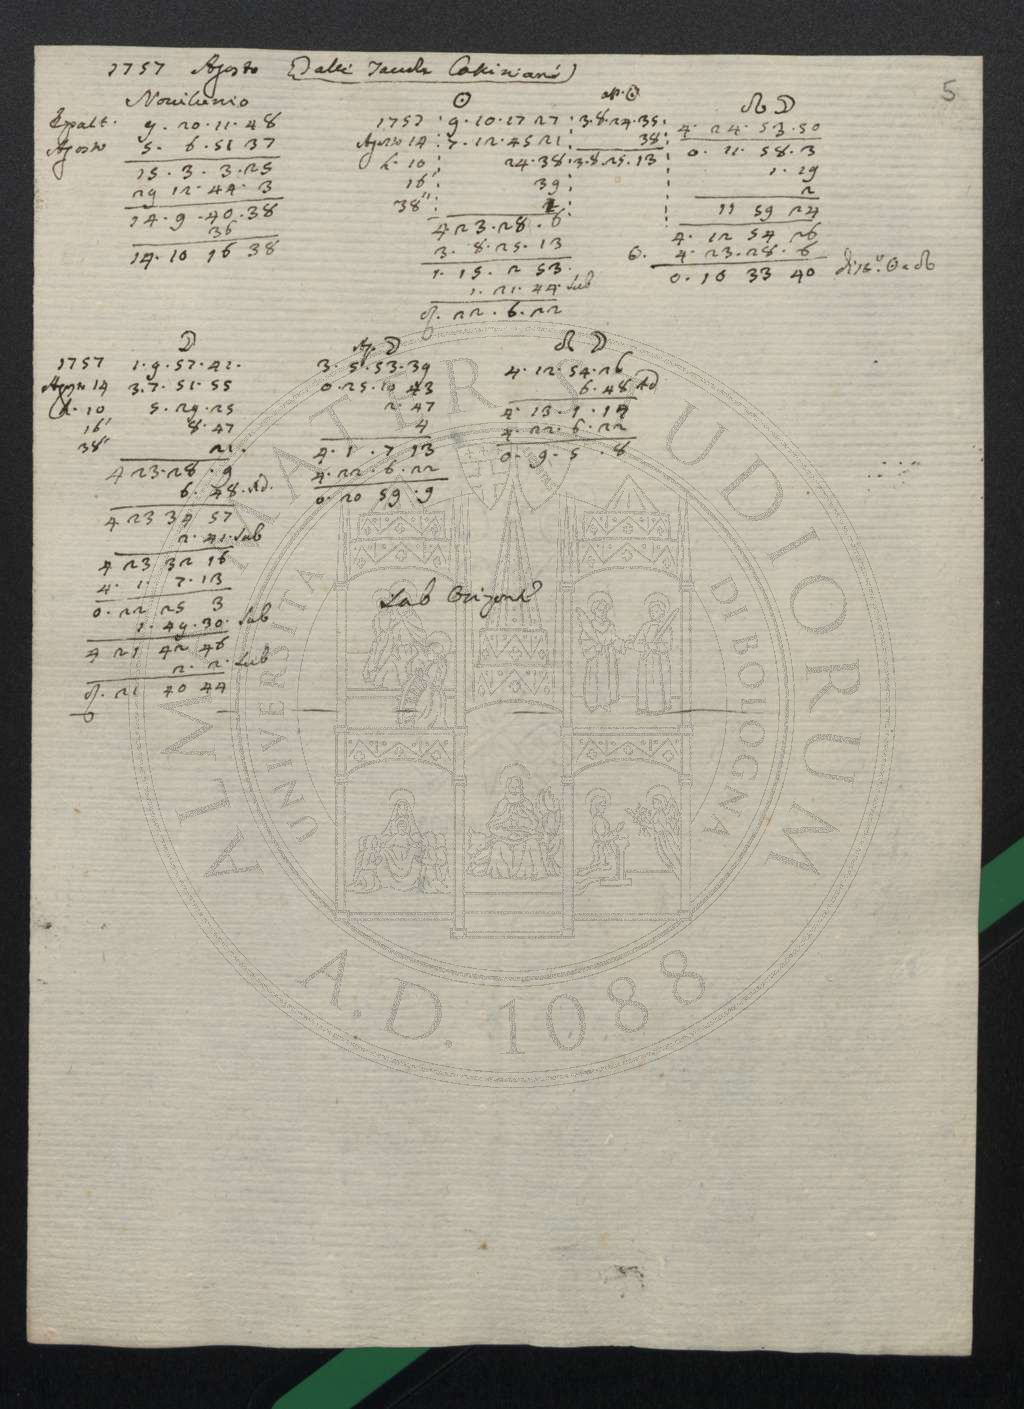 1757 Agosto (Dalle Tauole Cassiniane)
5
Nouilunio
Epatt. 9. 20. 11. 48
Agosto 5. 6. 51 37
15. 3. 3. 25
29 12. 44. 3
14. 9. 40. 38
36
14. 10 16 38
☉
1757 9. 10. 17 27
Agosto 14 7. 12. 45 21
h. 10 24. 38
16' 39
38''
4 23. 28. 6
3. 8. 25. 13
1. 15. 2 53.
1. 21. 44 Sub
22. 6. 22
ap. ☉
3. 8. 24. 35
38
3. 8. 25. 13
☊ ☽
4. 24. 53. 50
0. 11. 58. 3
1. 29
2
11 59 24
4. 12 54 26
☉. 4. 23. 28. 6
0. 10 33 40
☽
1757 1. 9. 57. 42.
Agosto 14 3. 7. 51. 55
h. 10 5. 29. 25
16' 8. 47
38'' 21.
4 23. 28. 9
6. 48. Ad.
4 23 34 57
2. 41. Sub
4 23 32 16
4. 1. 7. 13
0. 22 25 3
1. 49. 30. Sub
4 21 42 46
2. 2. Sub
21 40 44
Ap. ☽
3. 5. 53. 39
0. 25. 10 43
2. 47
4
4. 1. 7 13
4. 22. 6. 22
0. 20 59. 9
☊ ☽
4. 12. 54. 26
6. 48 Ad
4. 13. 1. 14
4. 22. 6. 22
0. 9. 5. 8
Sub Orizonte
ALMA MATER STUDIORUM
UNIVERSITÀ DI BOLOGNA
A.D. 1088